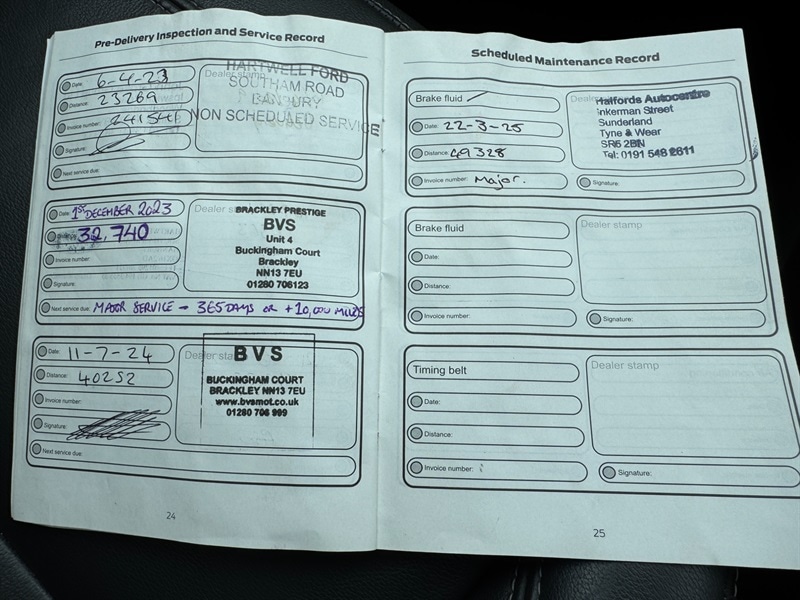 Pre-Delivery Inspection and Service Record
Date: 6-4-23
Distance: 23269
Invoice number: 241541
Signature:
Next service due:
Dealer stamp
HARTWELL FORD
SOUTHAM ROAD
BANBURY
NON SCHEDULED SERVICE
Date: 1ST DECEMBER 2023
Distance: 32,740
Invoice number
Signature:
Next service due: MAJOR SERVICE - 365 DAYS OR +10,000 MILES
Dealer
BRACKLEY PRESTIGE
BVS
Unit 4
Buckingham Court
Brackley
NN13 7EU
01280 706123
Date: 11-7-24
Distance: 40252
Invoice number:
Signature:
Next service due:
Dealer sta
BVS
BUCKINGHAM COURT
BRACKLEY NN13 7EU
www.bvsmot.co.uk
01280 706 999
24
Scheduled Maintenance Record
Brake fluid
Date: 22-3-25
Distance: 49328
Invoice number: Major.
Signature:
Dealer
Halfords Autocentre
Inkerman Street
Sunderland
Tyne & Wear
SR5 2BN
Tel: 0191 548 2611
Brake fluid
Date:
Distance:
Invoice number:
Dealer stamp
Signature:
Timing belt
Date:
Distance:
Invoice number:
Dealer stamp
Signature:
25